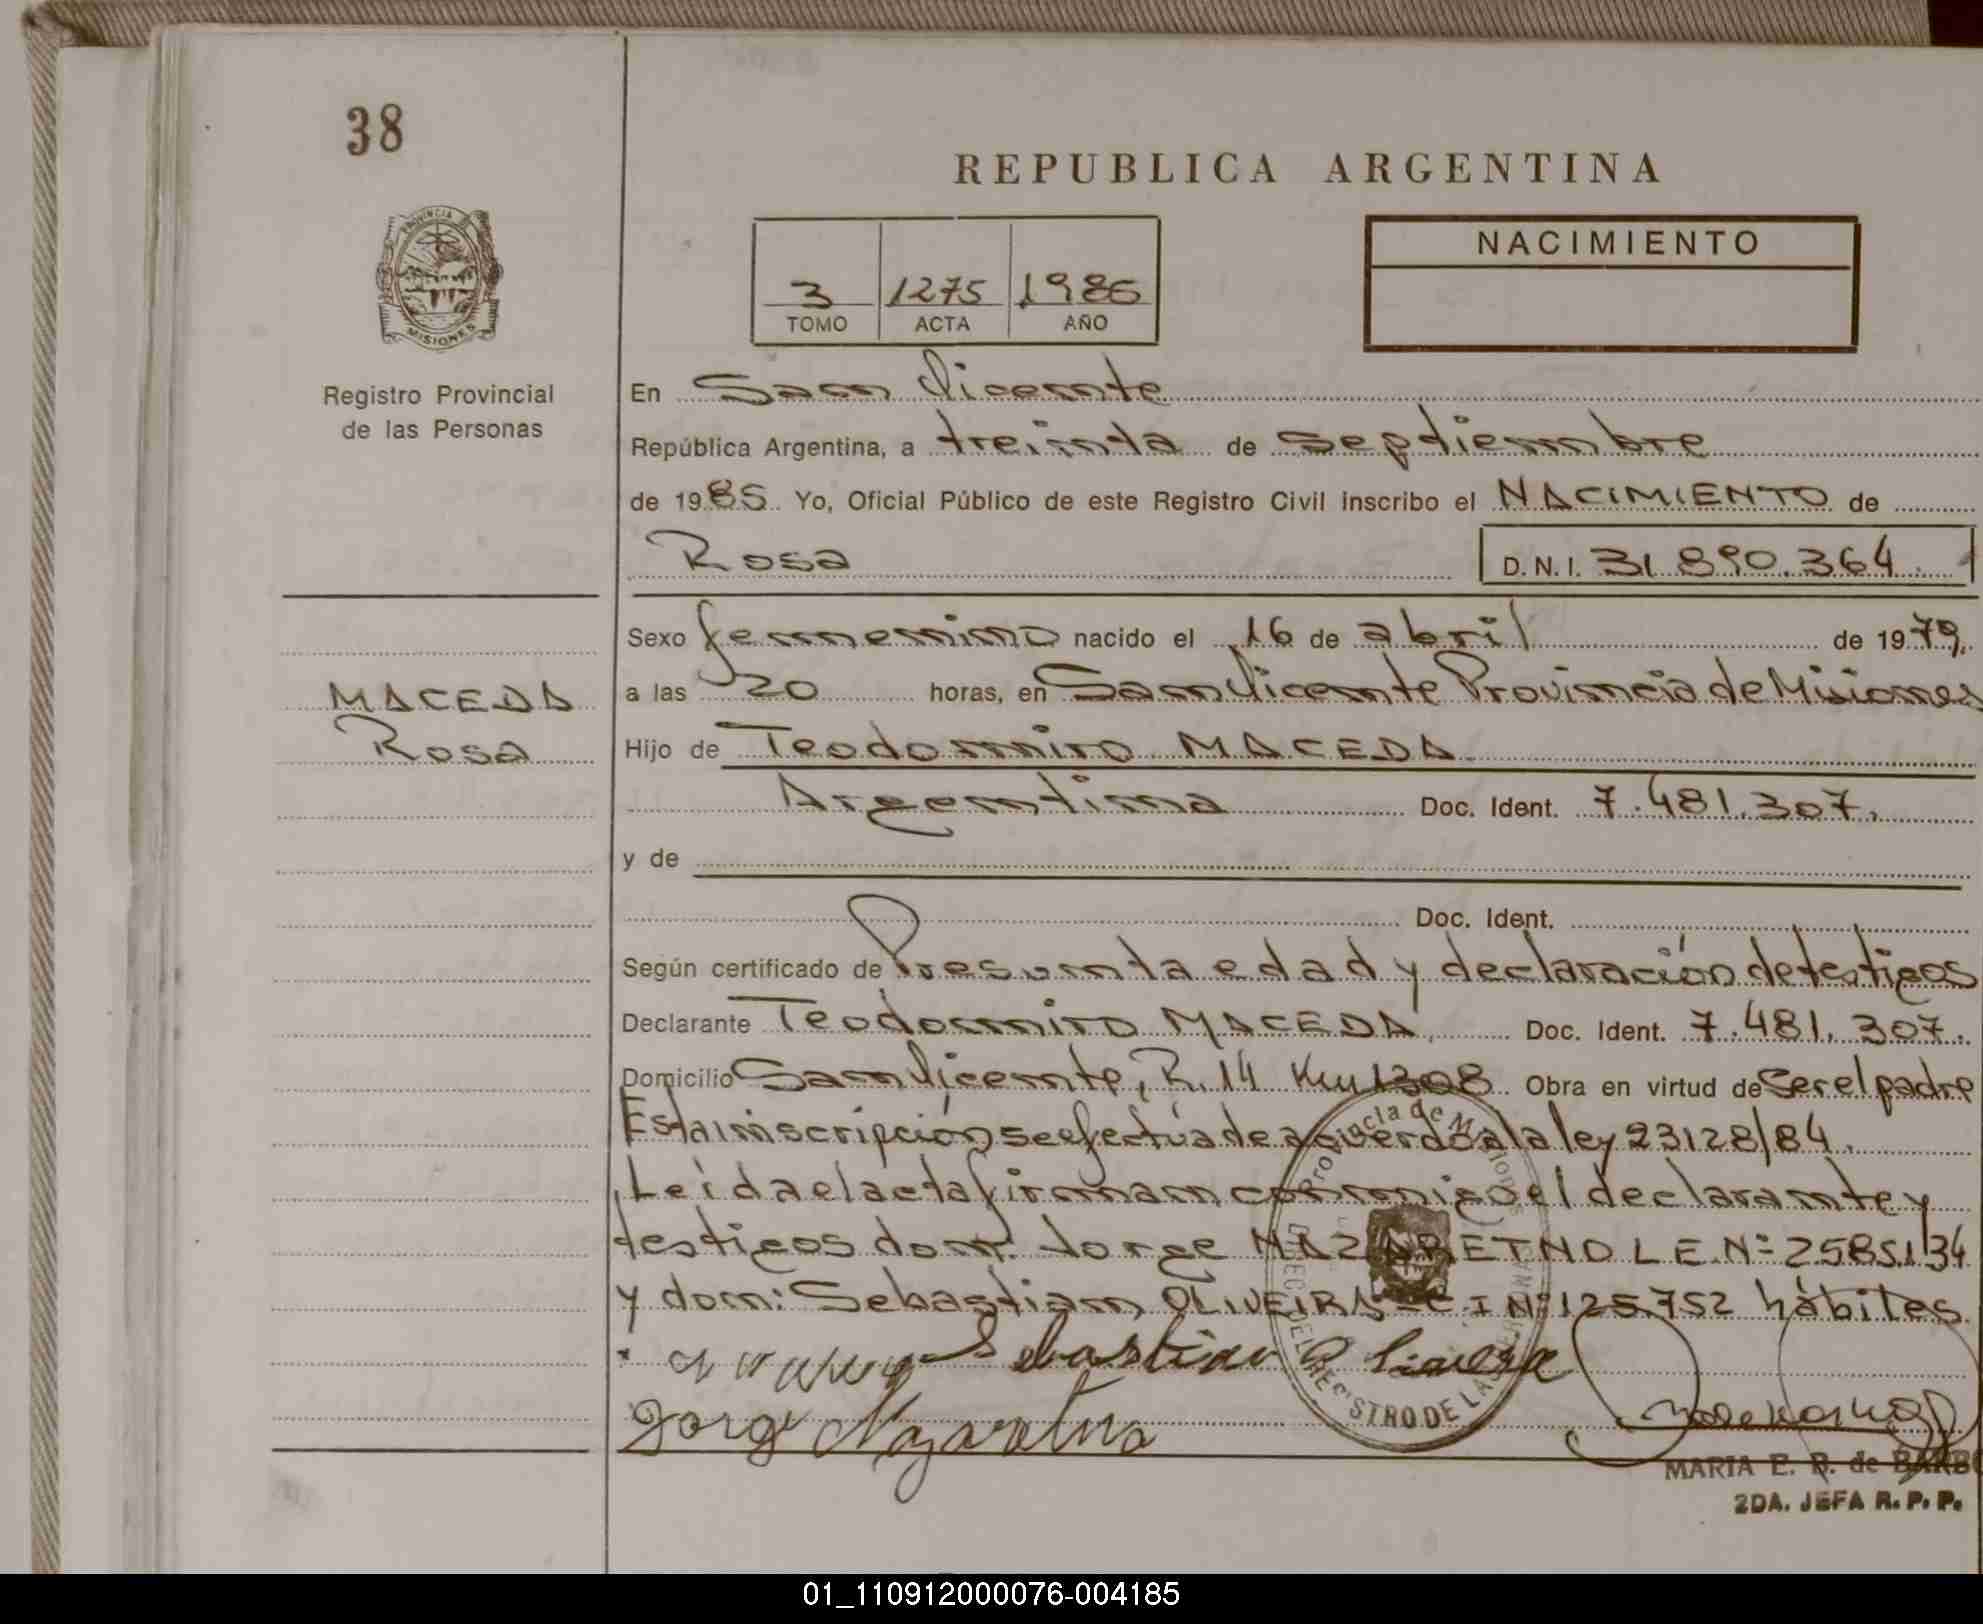 38
REPUBLICA ARGENTINA
NACIMIENTO
3 1275 1985
TOMO ACTA AÑO
PROVINCIA
MISIONES
Registro Provincial
de las Personas
En San Vicente
República Argentina, a treinta de septiembre
de 1985 Yo, Oficial Público de este Registro Civil inscribo el NACIMIENTO de
Rosa D.N.I. 31.890.364
Sexo femenino nacido el 16 de abril de 1979,
MACEDA
a las 20 horas, en San Vicente Provincia de Misiones
Rosa
Hijo de Teodomiro MACEDA
Argentina Doc. Ident. 7.481.307,
y de
Doc. Ident.
Según certificado de Presunta edad y declaración de testigos
Declarante Teodomiro MACEDA, Doc. Ident. 7.481.307.
Domicilio San Vicente, R. 14 Km 1308 Obra en virtud de ser el padre
Esta inscripción se efectúa de acuerdo a la ley 23128/84.
Leída el acta firman conmigo el declarante y
testigos don: Jorge NAZARETNO L E. Nº 2585134
y don: Sebastian OLIVEIRA - C I Nº 125.752 hábiles.
Sebastian
Jorge
Provincia de Misiones
MARIA E. B. de
2DA. JEFA R. P. P.
01_110912000076-004185